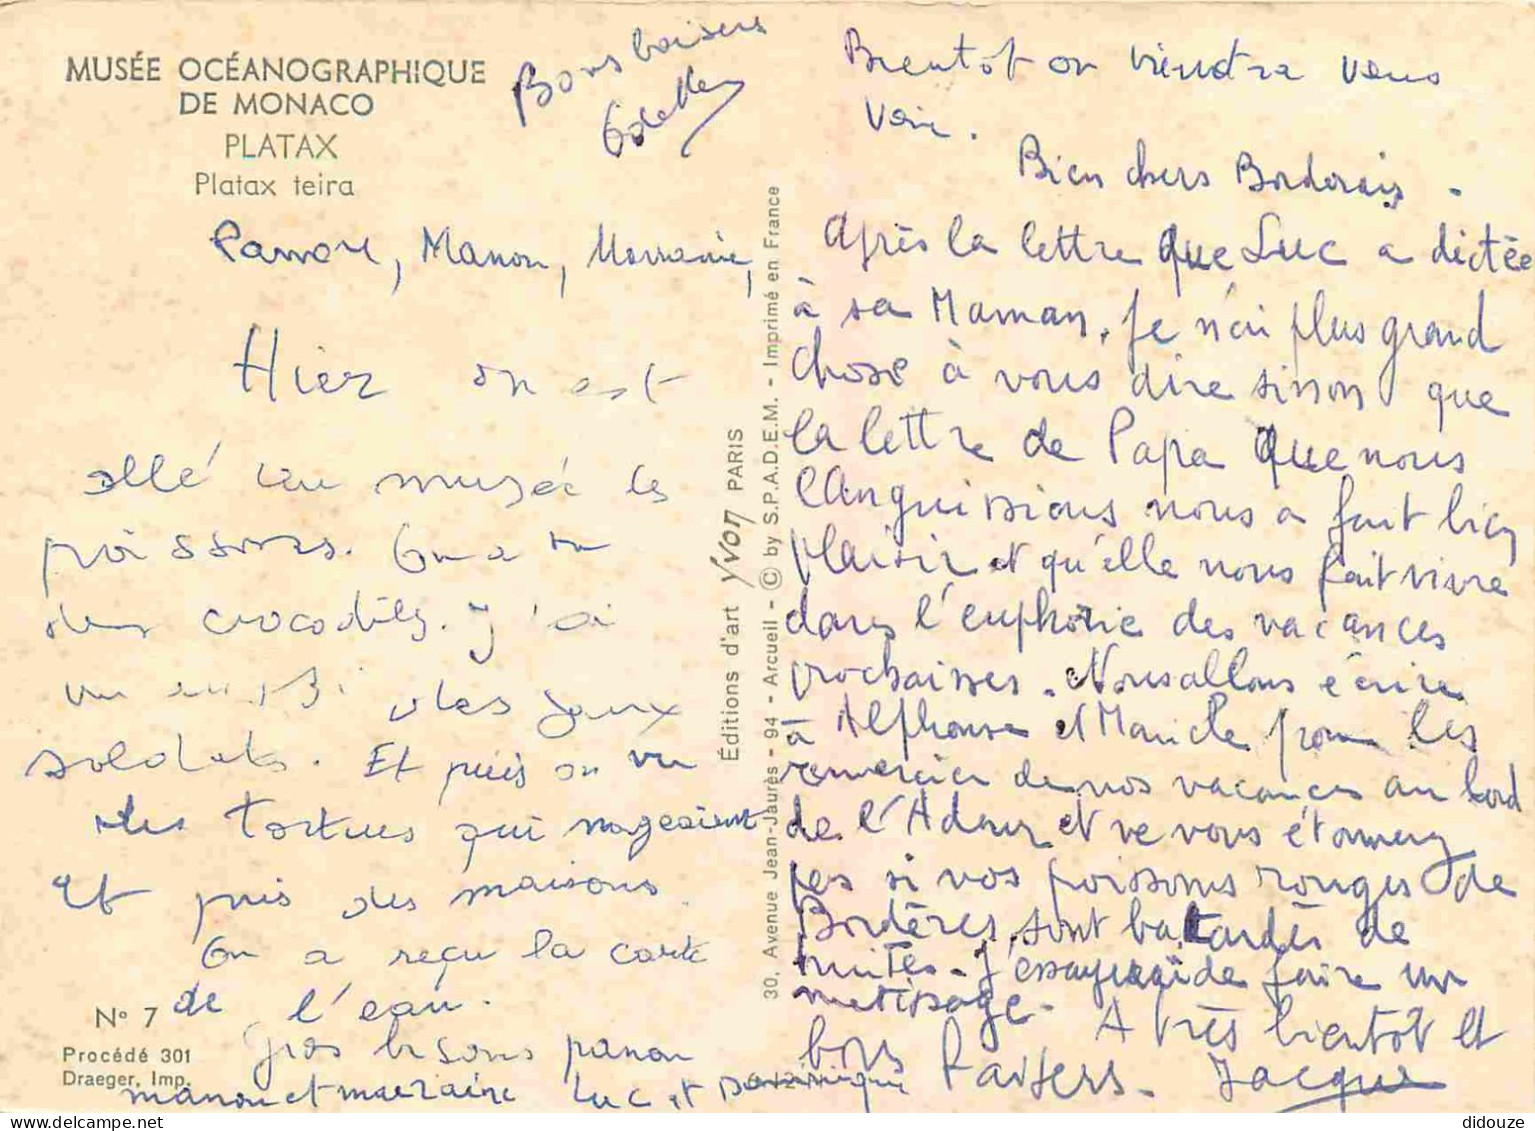 MUSÉE OCÉANOGRAPHIQUE
DE MONACO
PLATAX
Platax teira
Bons baisers
Odette
Panou, Manou, Marraine,
Hier on est
allé au musée les
poissons. On a vu
des crocodiles. J'ai
vu aussi des
soldats. Et puis on vu
des tortues qui nageaient
Et puis des maisons.
On a reçu la carte
de l'eau.
gros bisous panou
manou et marraine Luc et Dominique
N° 7
Procédé 301
Draeger, Imp.
Éditions d'art Yvon PARIS
30, Avenue Jean-Jaurès - 94 - Arcueil - © by S.P.A.D.E.M. - Imprimé en France
Bientôt on viendra vous
voir.
Bien chers Borderais -
Après la lettre que Luc a dictée
à sa Maman, je n'ai plus grand
chose à vous dire sinon que
la lettre de Papa que nous
languissions nous a fait bien
plaisir et qu'elle nous fait vivre
dans l'euphorie des vacances
prochaines. Nous allons écrire
à Alphonse et pour les
remercier de nos vacances au bord
de l'Adour et ne vous étonnez
pas si vos poissons rouges de
Bordères sont batardés de
truites - J'essayerai de faire un
métissage - A très bientôt et
bons baisers - Jacques
didouze